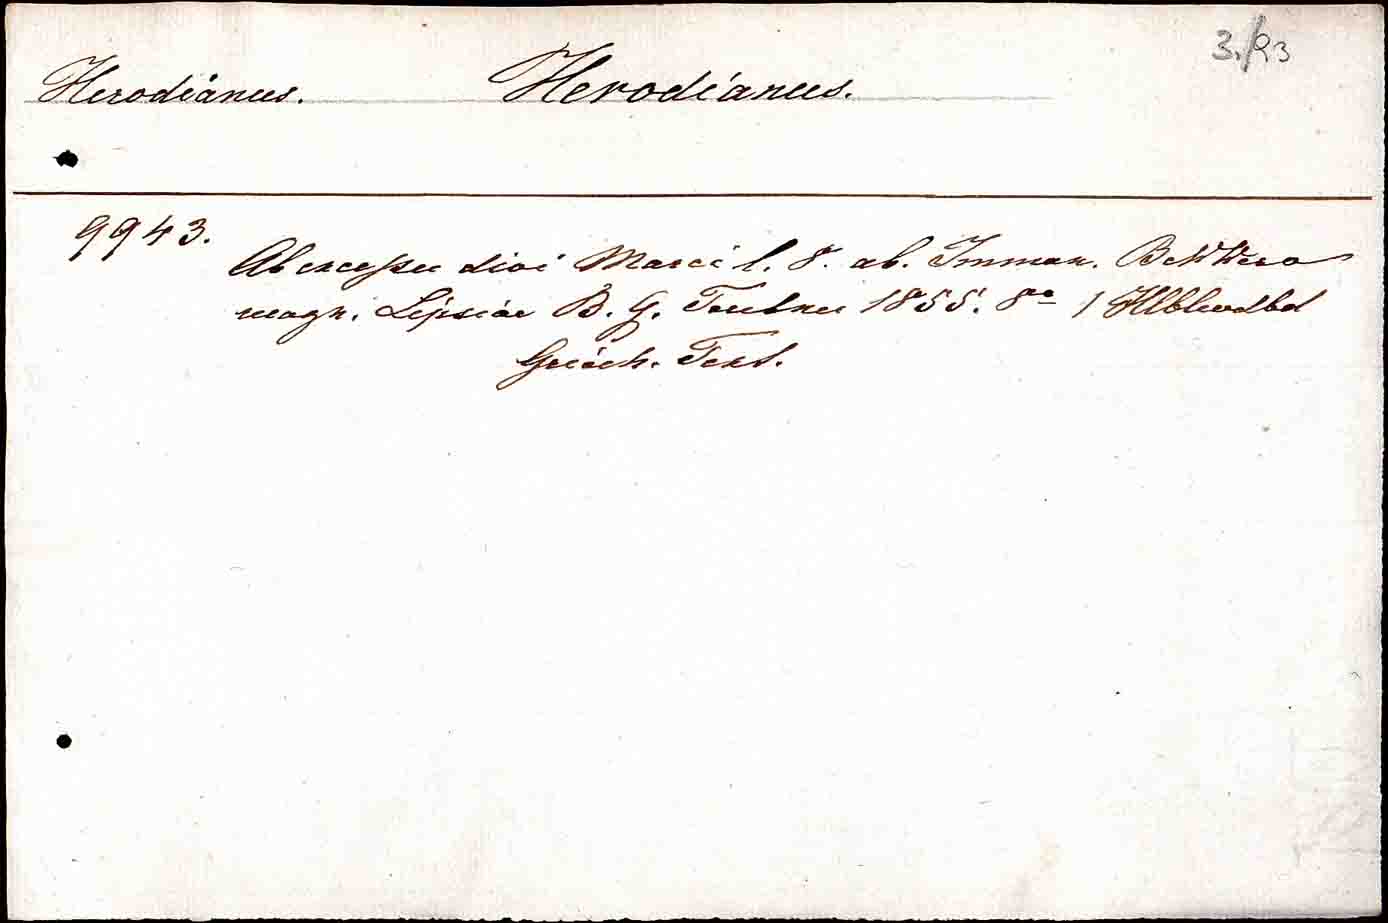 3./93
Herodianus. Herodianus.
9943.
Ab excessu divi Marci l. 8. ab. Imman. Bekkero
recogn. Lipsiae B. G. Teubner 1855. 8° 1 Hlblwdbd
Griech. Text.